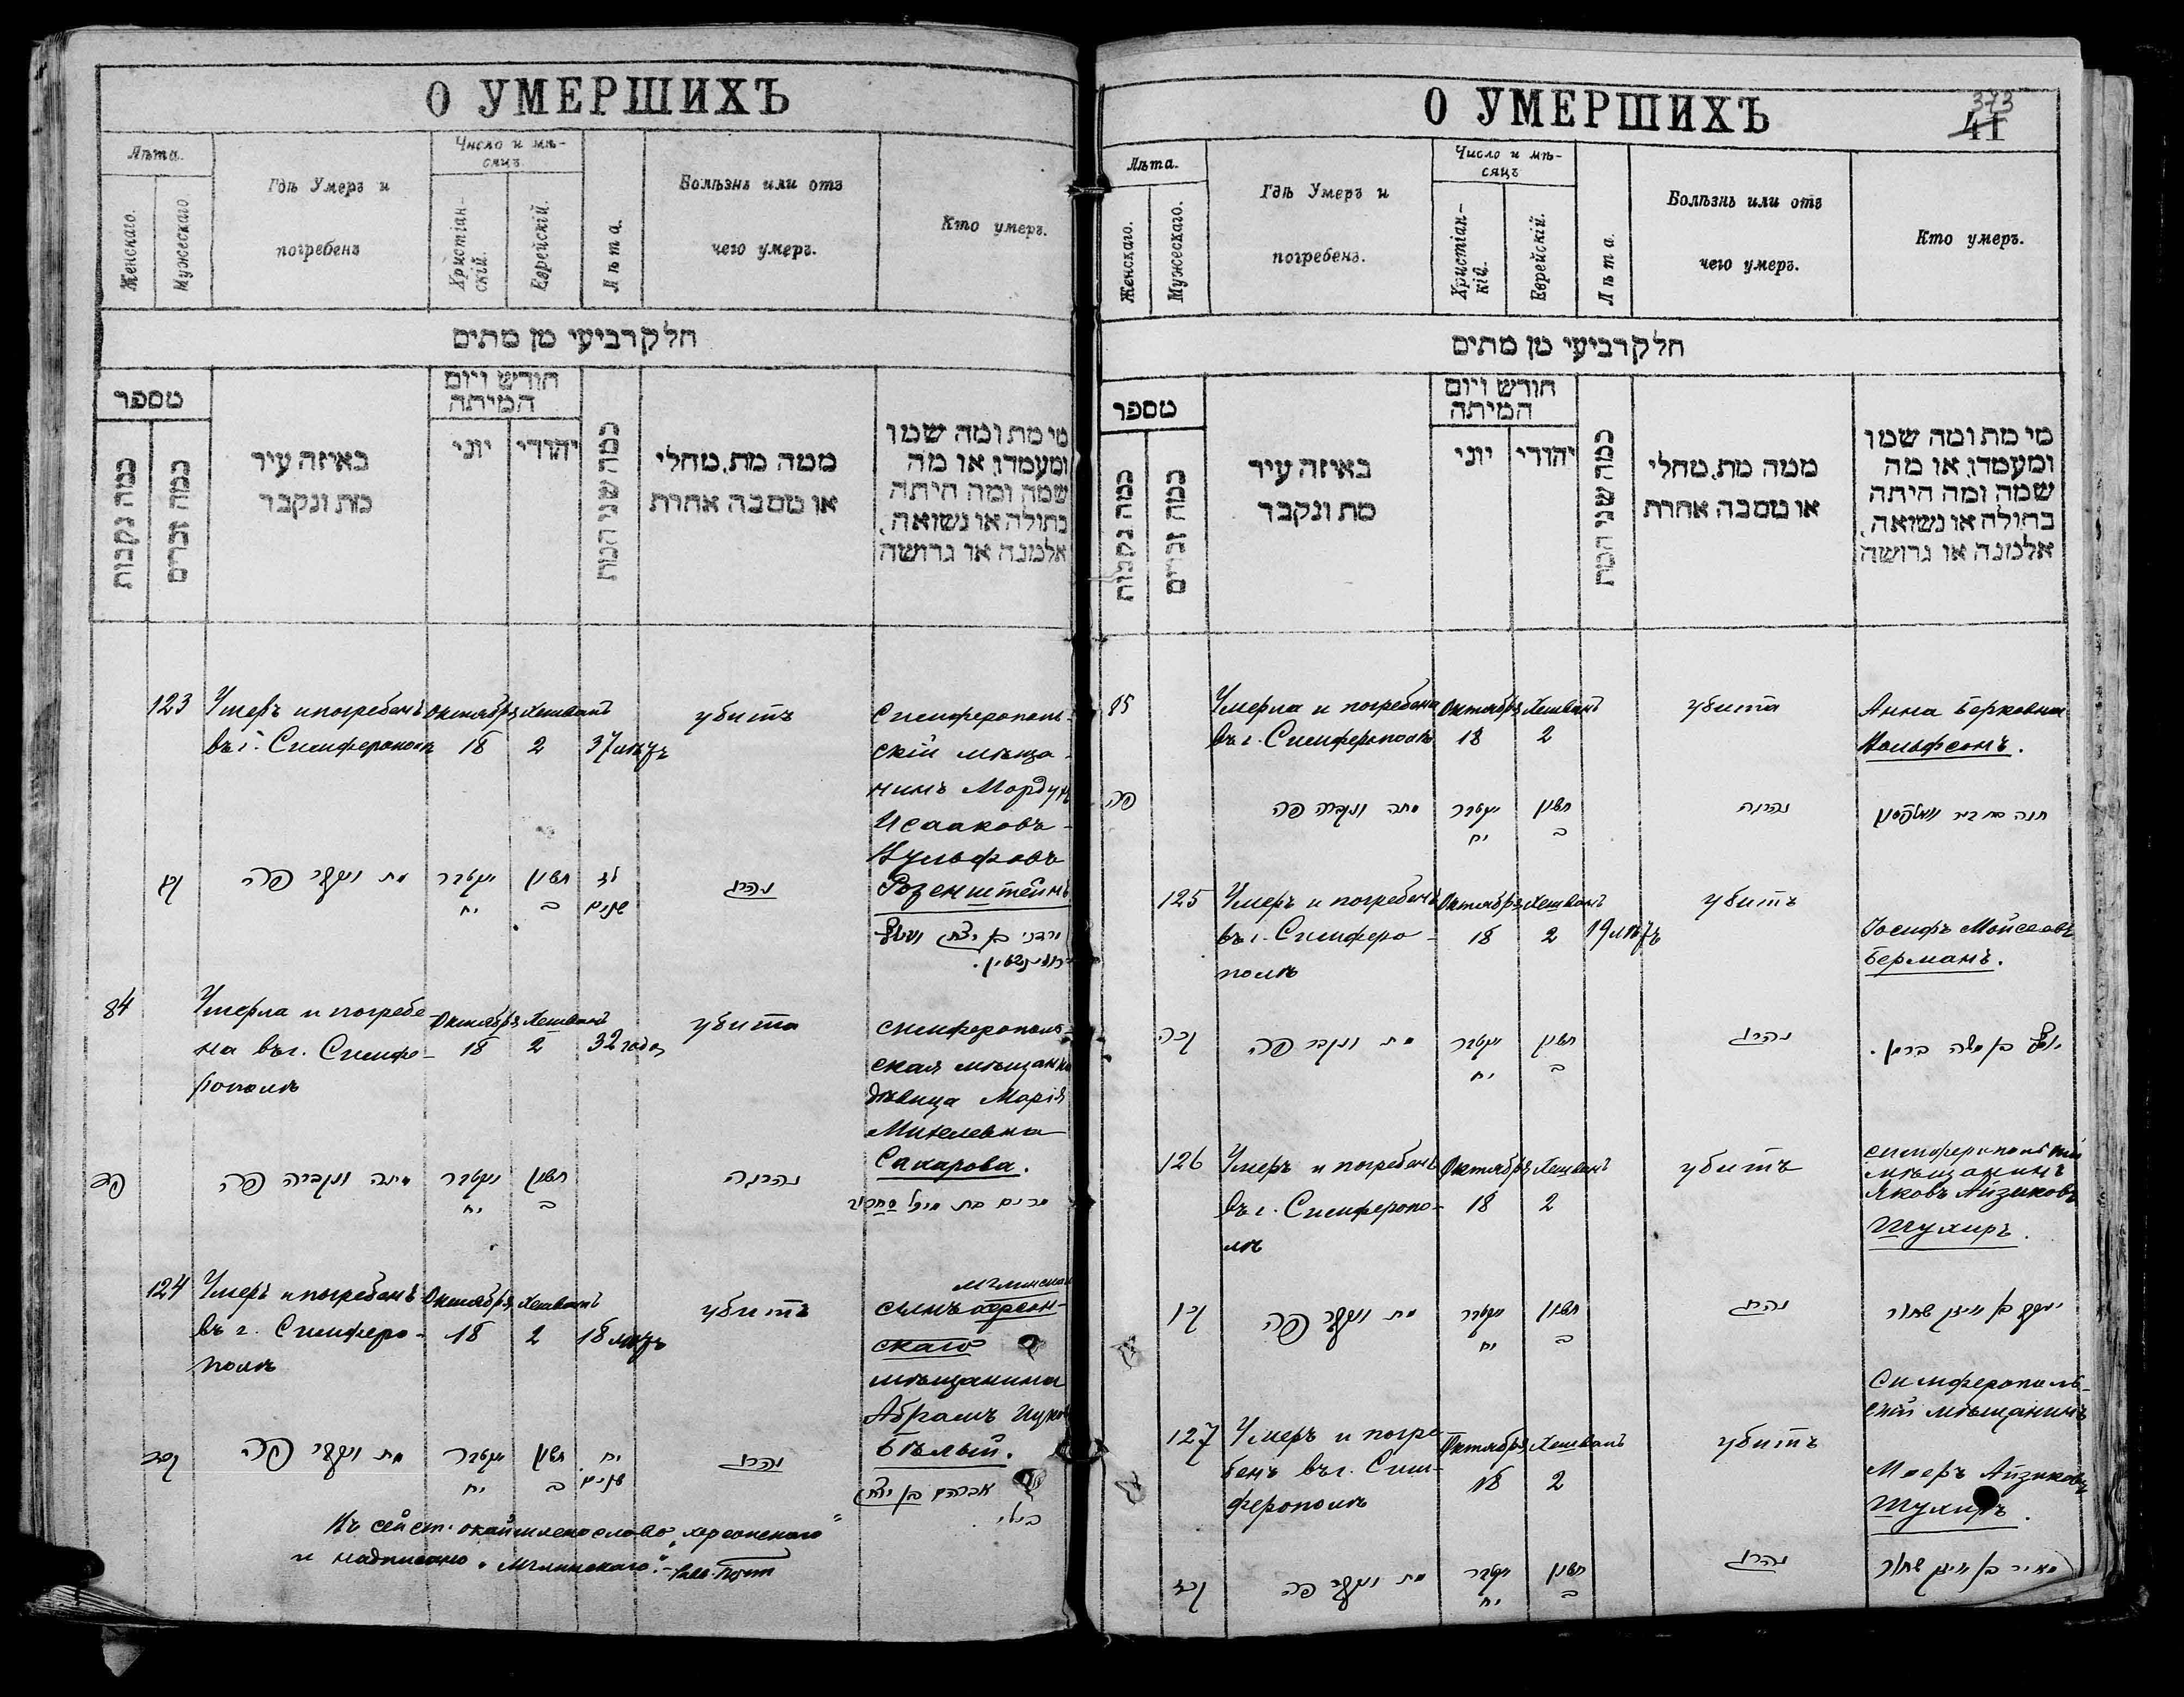 О УМЕРШИХЪ
Лѣта.
Женскаго.
Мужескаго
Гдѣ Умеръ и
погребенъ
Число и мѣ-
сяцъ
Христіан-
скій.
Еврейскій.
Лѣта.
Болѣзнь или отъ
чего умеръ.
Кто умеръ.
חלק רביעי מן מתים
מספר
כמה נקבות
כמה זכרים
באיזה עיר
מת ונקבר
חודש ויום
המיתה
יוני
יהודי
כמה שני המת
ממה מת, מחלי
או מסבה אחרת
מי מת ומה שמו
ומעמדו, או מה
שמה ומה היתה
בתולה או נשואה,
אלמנה או גרושה
123
Умеръ и погребенъ
въ г. Симферополѣ
Октября
18
Хешванъ
2
37 лѣтъ
убитъ
Симферополь-
скій мѣща-
нинъ Мордух
Исааковъ-
Вульфовъ
Розенштейнъ
קכג
מת ונקבר פה
יקטבר
יח
חשון
ב
לז
שנים
נהרג
מרדכי בן יצחק וואלף
ראזענשטיין.
84
Умерла и погребе
на въ г. Симфе-
рополѣ
Октября
18
Хешванъ
2
32 года
убита
симферополь-
ская мѣщанка
дѣвица Марія
Михелевна
Сахарова.
פד
מתה ונקברה פה
יקטבר
יח
חשון
ב
נהרגה
מרים בת מיכל סחרוב
124
Умеръ и погребенъ
въ г. Симферо-
полѣ
Октября
18
Хешванъ
2
18 лѣтъ
убитъ
мглинскаго
сынъ херсон-
скаго
мѣщанина
Абрамъ Ицков
Бѣлый.
קכד
מת ונקבר פה
יקטבר
יח
חשון
ב
יח
שנים
נהרג
אברהם בן יצחק
בילי.
Къ сей ст. окаймлено слово „херсонскаго"
и надписано „мглинскаго".-
О УМЕРШИХЪ
373
41
Лѣта.
Женскаго.
Мужескаго.
Гдѣ Умеръ и
погребенъ.
Число и мѣ-
сяцъ
Христіан-
кій.
Еврейскій.
Лѣта.
Болѣзнь или отъ
чего умеръ.
Кто умеръ.
חלק רביעי מן מתים
מספר
כמה נקבות
כמה זכרים
באיזה עיר
מת ונקבר
חודש ויום
המיתה
יוני
יהודי
כמה שני המת
ממה מת, מחלי
או מסבה אחרת
מי מת ומה שמו
ומעמדו, או מה
שמה ומה היתה
בתולה או נשואה,
אלמנה או גרושה
85
Умерла и погребена
въ г. Симферополѣ
Октября
18
Хешванъ
2
убита
Анна Берковна
Вольфсонъ.
פה
מתה ונקברה פה
יקטבר
יח
חשון
ב
נהרגה
חנה בת בער וואלפסאן
125
Умеръ и погребенъ
въ г. Симферо-
полѣ
Октября
18
Хешванъ
2
19 лѣтъ
убитъ
Іосифъ Мойсеевъ
Берманъ.
קכה
מת ונקבר פה
יקטבר
יח
חשון
ב
נהרג
יוסף בן משה ברמן.
126
Умеръ и погребенъ
въ г. Симферопо-
лѣ
Октября
18
Хешванъ
2
убитъ
симферопольскій
мѣщанинъ
Яковъ Айзиковъ
Шухиръ.
קכו
מת ונקבר פה
יקטבר
יח
חשון
ב
נהרג
יעקב בן אייזק שחור
127
Умеръ и погре-
бенъ въ г. Сим-
ферополѣ
Октября
18
Хешванъ
2
убитъ
Симферополь-
скій мѣщанинъ
Мееръ Айзиковъ
Шухиръ.
קכז
מת ונקבר פה
יקטבר
יח
חשון
ב
נהרג
מאיר בן אייזק שחור